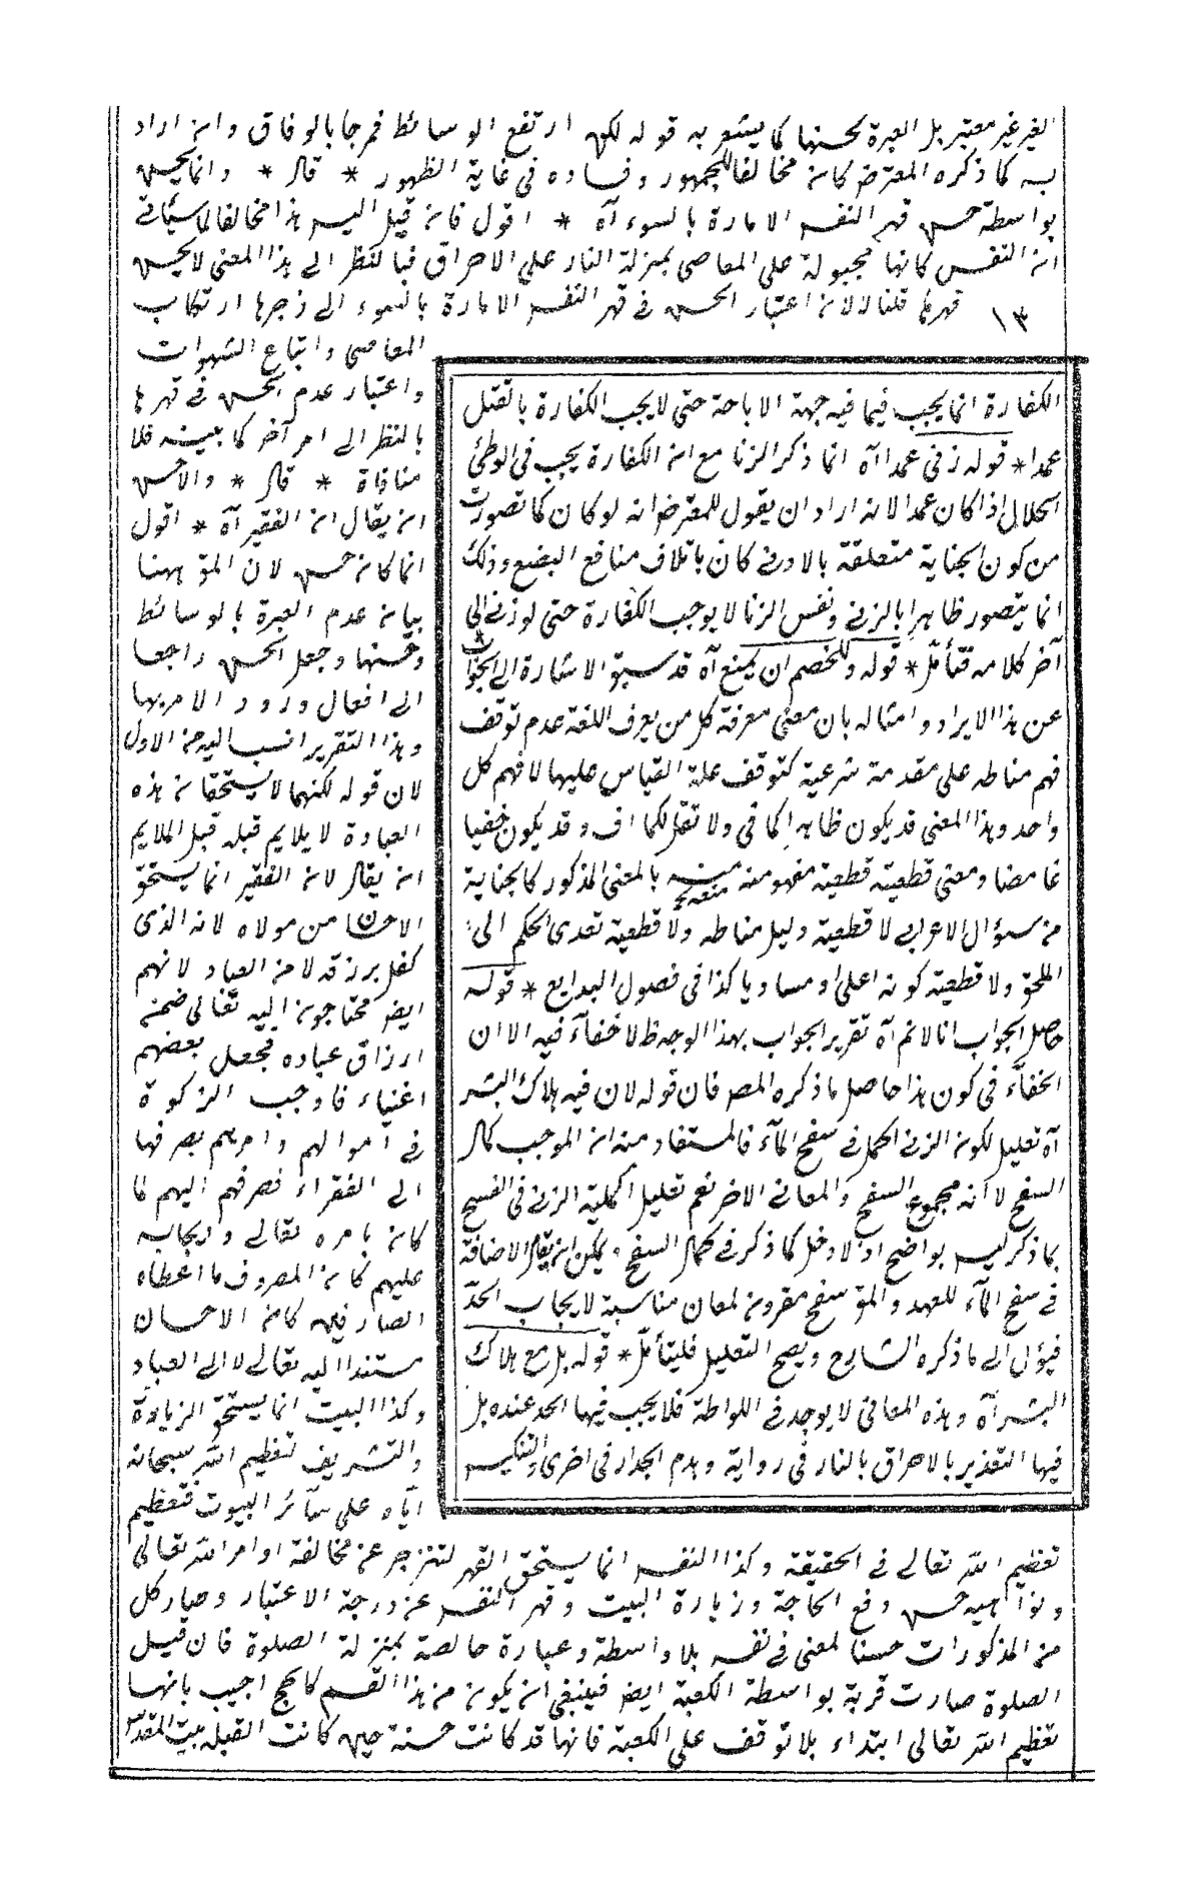 الغير غير معتبر بل العبرة لحسنها كما يشعر به قوله لكن ارتفع الوسائط فمرجا بالوفاق وان اراد
به كما ذكره المعترض كان مخالفا للجمهور وفساده فى غاية الظهور * قال * وانما يحسن
بواسطة حسن قهر النفس الامارة بالسوء آه * اقول فان قيل اليس هذا مخالفا لما سيأتى
ان النفس كانها مجبولة على المعاصى بمنزلة النار على الاحراق فبالنظر الى هذا المعنى لا يحسن
قهرها قلنا لا لان اعتبار الحسن فى قهر النفس الامارة بالسوء الى زجرها ارتكاب
١٣
المعاصى واتباع الشهوات
واعتبار عدم الحسن فى قهرها
بالنظر الى امر آخر كما بينه فلا
منافاة * قال * والاحسن
ان يقال ان الفقير آه * اقول
انما كان حسن لان المق ههنا
بيان عدم العبرة بالوسائط
وحسنها وجعل الحسن راجعا
الى افعال ورود الامر بها
وهذا التقرير انسب اليه من الاول
لان قوله لكنهما لا يستحقان هذه
العبادة لا يلايم قبله قبل الملايم
ان يقال لان الفقير انما يستحق
الاحسان من مولاه لانه الذى
كفل برزقه لا من العباد لانهم
ايض محتاجون اليه تعالى ضمن
ارزاق عباده فجعل بعضهم
اغنياء فاوجب الزكوة
فى اموالهم وامرهم بصرفها
الى الفقراء فصرفهم اليهم لما
كان بامره تعالى وايجابه
عليهم كان المصروف ما اعطاه
الصارفين كان الاحسان
مستندا اليه تعالى لا الى العباد
وكذا البيت انما يستحق الزيادة
والتشريف لتعظيم الله سبحانه
اياه على سائر البيوت فتعظيم
تعظيم الله تعالى فى الحقيقة وكذا النفس انما يستحق القهر لتنزجر عن مخالفة اوامر الله تعالى
ونواهيه حسن دفع الحاجة وزيارة البيت وقهر النفس عن درجة الاعتبار وصار كل
من المذكورات حسنا لمعنى فى نفسه بلا واسطة وعبارة خالصة بمنزلة الصلوة فان قيل
الصلوة صارت قربة بواسطة الكعبة ايض فينبغى ان يكون من هذا القسم كالحج اجيب بانها
تعظيم الله تعالى ابتداء بلا توقف على الكعبة فانها قد كانت حسنة حين كانت القبلة بيت المقدس
الكفارة انما يجب فيما فيه جهة الاباحة حتى لا يجب الكفارة بالقتل
عمدا * قوله زنى عمدا آه انما ذكر الزنا مع ان الكفارة يجب فى الوطئ
الحلال اذا كان عمدا لانه اراد ان يقول للمعترض انه لو كان كما تصورت
من كون الجناية متعلقة بالاذى كان باتلاف منافع البضع وذلك
انما يتصور ظاهرا بالزنى ونفس الزنا لا يوجب الكفارة حتى لو زنى الى
آخر كلامه فتأمل * قوله وللخصم ان يمنع آه قد سبق الاشارة الى الجواب *
عن هذا الايراد وامثاله بان معنى معرفة كل من يعرف اللغة عدم توقف
فهم مناطه على مقدمة شرعية كتوقف علة القياس عليها لا فهم كل
واحد وهذا المعنى قد يكون ظاهرا كما فى ولا تقل لهما اف وقد يكون خفيا
غامضا ومعنى قطعيته قطعية مفهومنه منه بالمعنى المذكور كالجناية
من سؤال الاعرابى لا قطعية دليل مناطه ولا قطعية تعدى الحكم الى
الملحق ولا قطعية كونه اعلى او مساويا كذا فى فصول البدايع * قوله
حاصل الجواب انا لا نم آه تقرير الجواب بهذا الوجه ظ لا خفاء فيه الا ان
الخفاء فى كون هذا حاصل ما ذكره المص فان قوله لان فيه هلاك البشر
آه تعليل لكون الزنى اكمل فى سفح الماء فالمستفاد منه ان الموجب كمال
السفح لا انه مجموع السفح والمعانى الاخر نعم تعليل اكملية الزنى فى السفح
بما ذكر ليس بواضح اذ لا دخل لما ذكر فى كمال السفح ويمكن ان يقال الاضافة
فى سفح الماء للعهد والمق سفح مقرون لمعان مناسبة لايجاب الحد
فيؤل الى ما ذكره الشارح ويصح التعليل فليتأمل * قوله بل مع هلاك
البشر آه وهذه المعانى لا يوجد فى اللواطة فلا يجب فيها الحد عنده بل
فيها التعذير بالاحراق بالنار فى رواية وهدم الجدار فى اخرى والتنكيس